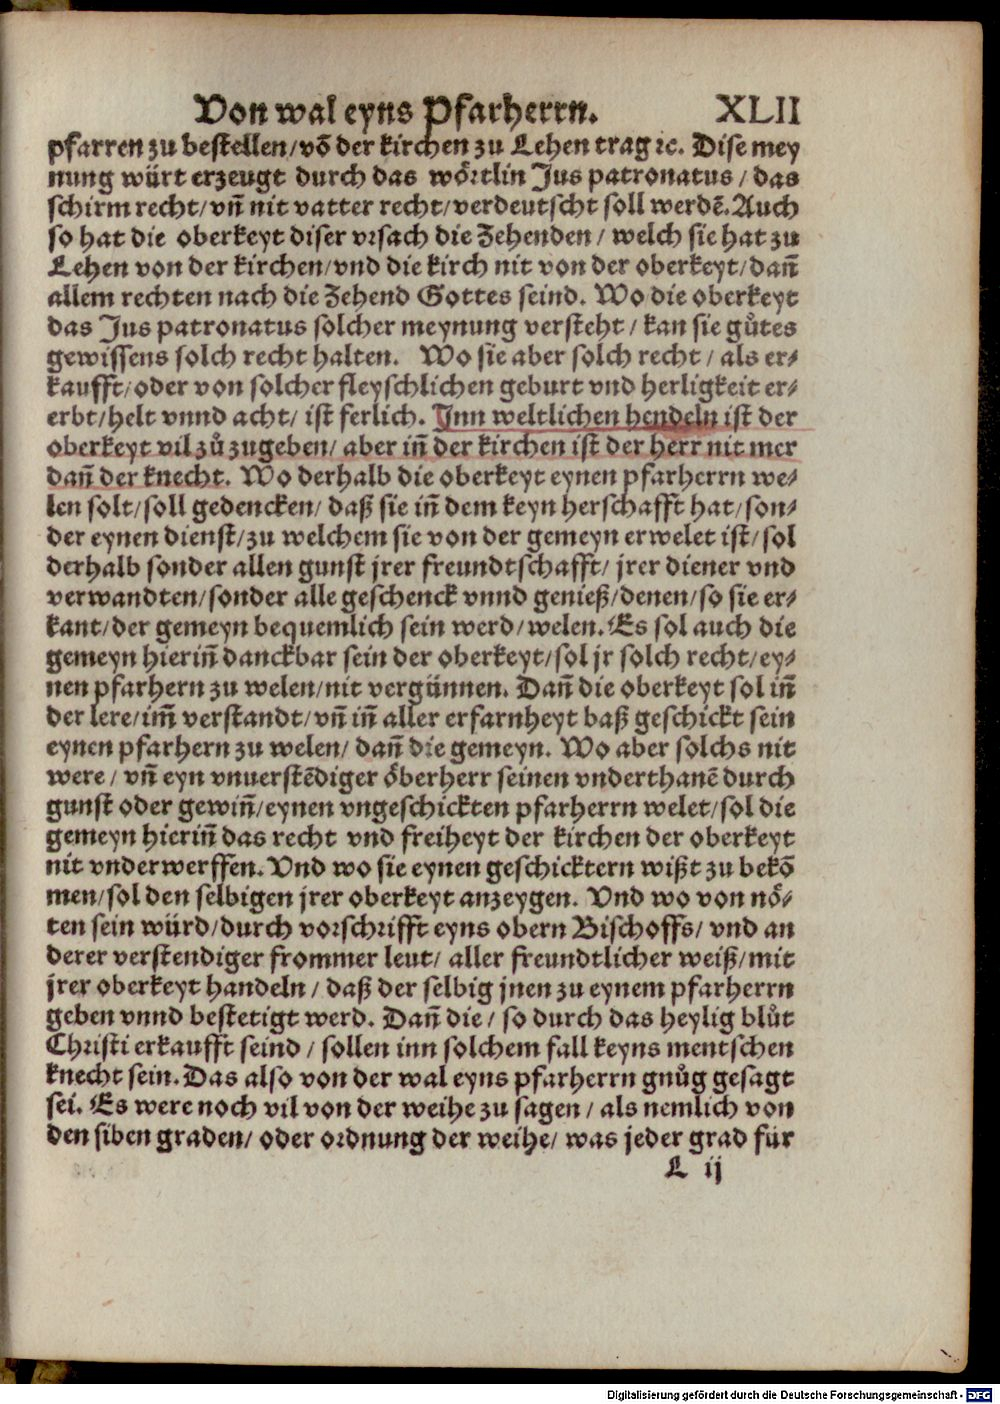 Von wal eyns Pfarherrn. XLII
pfarren zu bestellen/võ der kirchen zu Lehen trag ꝛc. Dise mey
nung würt erzeugt durch das wörtlin Jus patronatus/ das
schirm recht/vñ nit vatter recht/verdeutscht soll werdẽ. Auch
so hat die oberkeyt diser vrsach die Zehenden/ welch sie hat zu
Lehen von der kirchen/vnd die kirch nit von der oberkeyt/dañ
allem rechten nach die Zehend Gottes seind. Wo die oberkeyt
das Jus patronatus solcher meynung versteht/ kan sie gůtes
gewissens solch recht halten. Wo sie aber solch recht/ als er⸗
kaufft/oder von solcher fleyschlichen geburt vnd herligkeit er⸗
erbt/helt vnnd acht/ ist ferlich. Inn weltlichen hendeln ist der
oberkeyt vil zů zugeben/ aber iñ der kirchen ist der herr nit mer
dañ der knecht. Wo derhalb die oberkeyt eynen pfarherrn we⸗
len solt/soll gedencken/ daß sie iñ dem keyn herschafft hat/son⸗
der eynen dienst/zu welchem sie von der gemeyn erwelet ist/sol
derhalb sonder allen gunst jrer freundtschafft/ jrer diener vnd
verwandten/sonder alle geschenck vnnd genieß/denen/so sie er⸗
kant/der gemeyn bequemlich sein werd/welen. Es sol auch die
gemeyn hieriñ danckbar sein der oberkeyt/sol jr solch recht/ey⸗
nen pfarhern zu welen/nit vergünnen. Dañ die oberkeyt sol iñ
der lere/im̃ verstandt/vñ iñ aller erfarnheyt baß geschickt sein
eynen pfarhern zu welen/ dañ die gemeyn. Wo aber solchs nit
were/ vñ eyn vnuerstẽdiger öberherr seinen vnderthanẽ durch
gunst oder gewiñ/eynen vngeschickten pfarherrn welet/sol die
gemeyn hieriñ das recht vnd freiheyt der kirchen der oberkeyt
nit vnderwerffen. Vnd wo sie eynen geschicktern wißt zu bekõ
men/sol den selbigen jrer oberkeyt anzeygen. Vnd wo von nö⸗
ten sein würd/durch vorschrifft eyns obern Bischoffs/ vnd an
derer verstendiger frommer leut/ aller freundtlicher weiß/mit
jrer oberkeyt handeln/ daß der selbig jnen zu eynem pfarherrn
geben vnnd bestetigt werd. Dañ die/ so durch das heylig blůt
Christi erkaufft seind/ sollen inn solchem fall keyns mentschen
knecht sein. Das also von der wal eyns pfarherrn gnůg gesagt
sei. Es were noch vil von der weihe zu sagen/ als nemlich von
den siben graden/ oder ordnung der weihe/ was jeder grad für
L ij
Digitalisierung gefördert durch die Deutsche Forschungsgemeinschaft - DFG